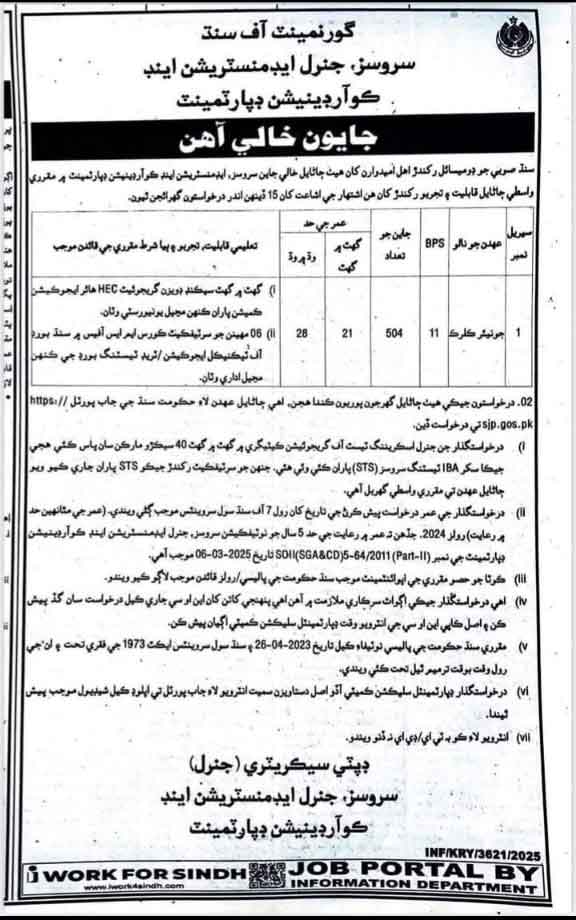 گورنمينٽ آف سنڌ
سروسز، جنرل ايڊمنسٽريشن اينڊ
ڪوآرڊينيشن ڊپارٽمينٽ
جايون خالي آهن
سنڌ صوبي جو ڊوميسائل رکندڙ اهل اميدوارن کان هيٺ ڄاڻايل خالي جاين سروسز، ايڊمنسٽريشن اينڊ ڪوآرڊينيشن ڊپارٽمينٽ ۾ مقرري
واسطي ڄاڻايل قابليت ۽ تجربو رکندڙ کان هن اشتهار جي اشاعت کان 15 ڏينهن اندر درخواستون گهرائجن ٿيون.
سيريل نمبر
عهدن جو نالو
BPS
جاين جو تعداد
عمر جي حد
گهٽ ۾ گهٽ
وڌ ۾ وڌ
تعليمي قابليت، تجربو ۽ ٻيا شرط مقرري جي قائدن موجب
1
جونيئر ڪلرڪ
11
504
21
28
i) گهٽ ۾ گهٽ سيڪنڊ ڊويزن گريجوئيٽ HEC هائر ايجوڪيشن
ڪميشن پاران ڪنهن مڃيل يونيورسٽي وٽان.
ii) 06 مهينن جو سرٽيفڪيٽ ڪورس ايم ايس آفيس ۾ سنڌ بورڊ
آف ٽيڪنيڪل ايجوڪيشن/ ٽريڊ ٽيسٽنگ بورڊ جي ڪنهن
مڃيل اداري وٽان.
02. درخواستون جيڪي هيٺ ڄاڻايل گهرجون پوريون ڪندا هجن، اهي ڄاڻايل عهدن لاءِ حڪومت سنڌ جي جاب پورٽل https://
sjp.gos.pk تي درخواست ڏين.
i) درخواستگذار جن جنرل اسڪريننگ ٽيسٽ آف گريجوئيشن ڪيٽيگري ۾ گهٽ ۾ گهٽ 40 سيڪڙو مارڪن سان پاس ڪئي هجي
جيڪا سکر IBA ٽيسٽنگ سروسز (STS) پاران ڪئي وئي هئي. جنهن جو سرٽيفڪيٽ رکندڙ جيڪو STS پاران جاري ڪيو ويو
ڄاڻايل عهدن تي مقرري واسطي گهربل آهي.
ii) درخواستگذار جي عمر درخواست پيش ڪرڻ جي تاريخ کان رول 7 آف سنڌ سول سروينٽس موجب ڳڻي ويندي. (عمر جي مٿانهين حد
۾ رعايت) رولز 2024. جڏهن ته عمر ۾ رعايت جي حد 5 سال جو نوٽيفڪيشن سروسز، جنرل ايڊمنسٽريشن اينڊ ڪوآرڊينيشن
ڊپارٽمينٽ جي نمبر SOII(SGA&CD)5-64/2011 (Part-II) تاريخ 06-03-2025 موجب آهي.
iii) ڪوٽا جو حصو مقرري جي اپوائنٽمينٽ موجب سنڌ حڪومت جي پاليسي/ رولز قائدن موجب لاڳو ڪيو ويندو.
iv) اهي درخواستگذار جيڪي اڳواٽ سرڪاري ملازمت ۾ آهن اهي پنهنجي کاتن کان اين او سي جاري ڪيل درخواست سان گڏ پيش
ڪن ۽ اصل ڪاپي اين او سي جي انٽرويو وقت ڊپارٽمينٽل سليڪشن ڪميٽي اڳيان پيش ڪن.
v) مقرري سنڌ حڪومت جي پاليسي نوٽيفاءِ ڪيل تاريخ 26-04-2023 ۽ سنڌ سول سروينٽس ايڪٽ 1973 جي فقري تحت ۽ ان جي
رول وقت بوقت ترميم ٿيل تحت ڪئي ويندي.
vi) درخواستگذار ڊپارٽمينٽل سليڪشن ڪميٽي آڏو اصل دستاويزن سميت انٽرويو لاءِ جاب پورٽل تي اپلوڊ ڪيل شيڊيول موجب پيش
ٿيندا.
vii) انٽرويو لاءِ ڪو به ٽي اي/ ڊي اي نه ڏنو ويندو.
ڊپٽي سيڪريٽري (جنرل)
سروسز، جنرل ايڊمنسٽريشن اينڊ
ڪوآرڊينيشن ڊپارٽمينٽ
INF/KRY/3621/2025
i WORK FOR SINDH
www.iwork4sindh.com
JOB PORTAL BY
INFORMATION DEPARTMENT